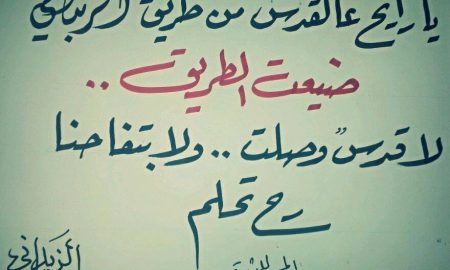 يا رايح عالقدس من طريق الزبداني
ضيعت الطريق ..
لا قدسٌ وصلت .. ولا بتفاحنا
رح تحلم
الزبداني